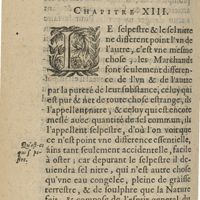 CHAPITRE XIII.
LE selpestre & le sel nitre
ne different point l'vn de
l'autre, c'est vne mesme
chose : les Marchands
font seulement differen-
ce de l'vn & de l'autre
par la pureté de leur substance, celuy qui
est pur & net de toute chose estrange, ils
l'appellent nitre, & celuy qui est encore
meslé auec quantité de sel commun, ils
l'appellent selpestre, d'où l'on voit que
ce n'est point vne difference essentielle,
ains tant seulement accidentelle, facile
à oster ; car depurant le selpestre il de-
uiendra sel nitre, qui n'est autre chose
qu'vne eau congelée, pleine de graisse
terrestre, & de soulphre que la Nature
fait, & compose de l'esprit general du
Qu'est-ce
que sel pe-
stre.